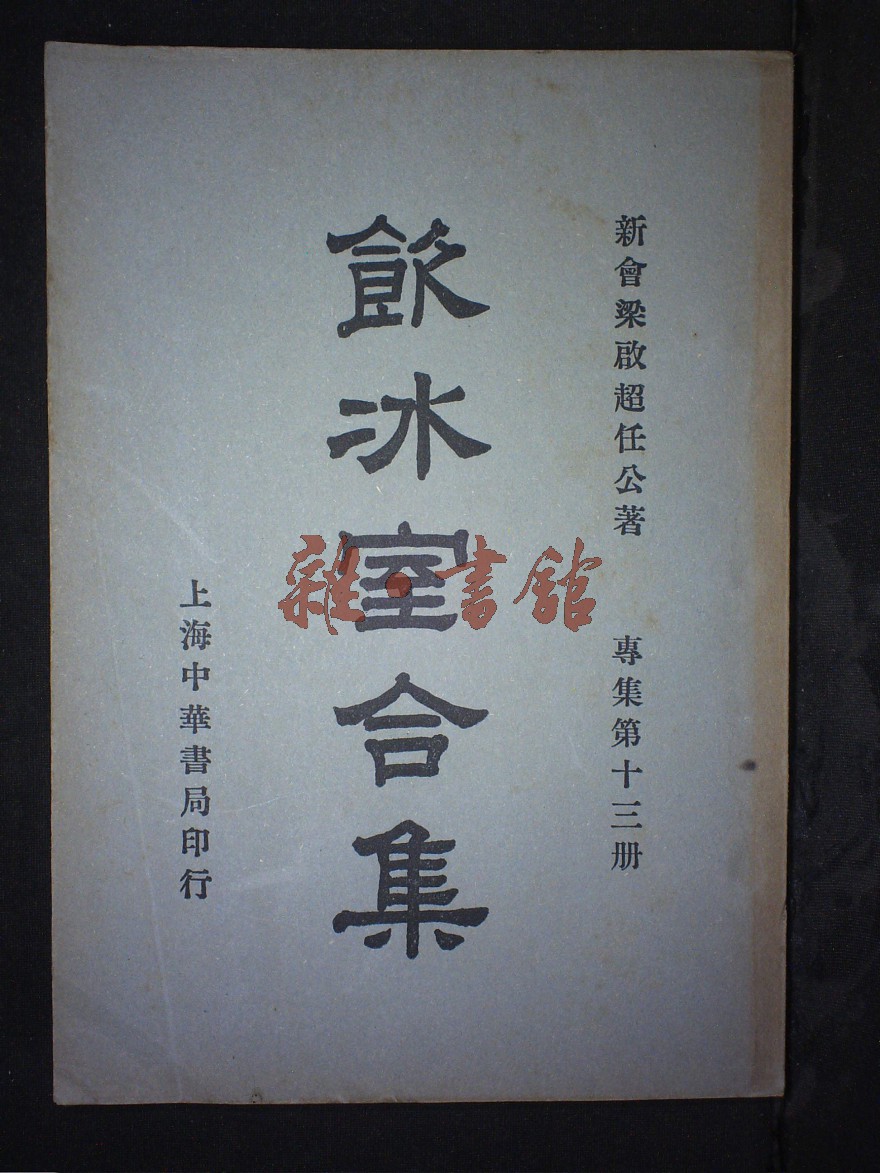 新會梁啟超任公著
專集第十三册
飲冰室合集
上海中華書局印行
雜·書館